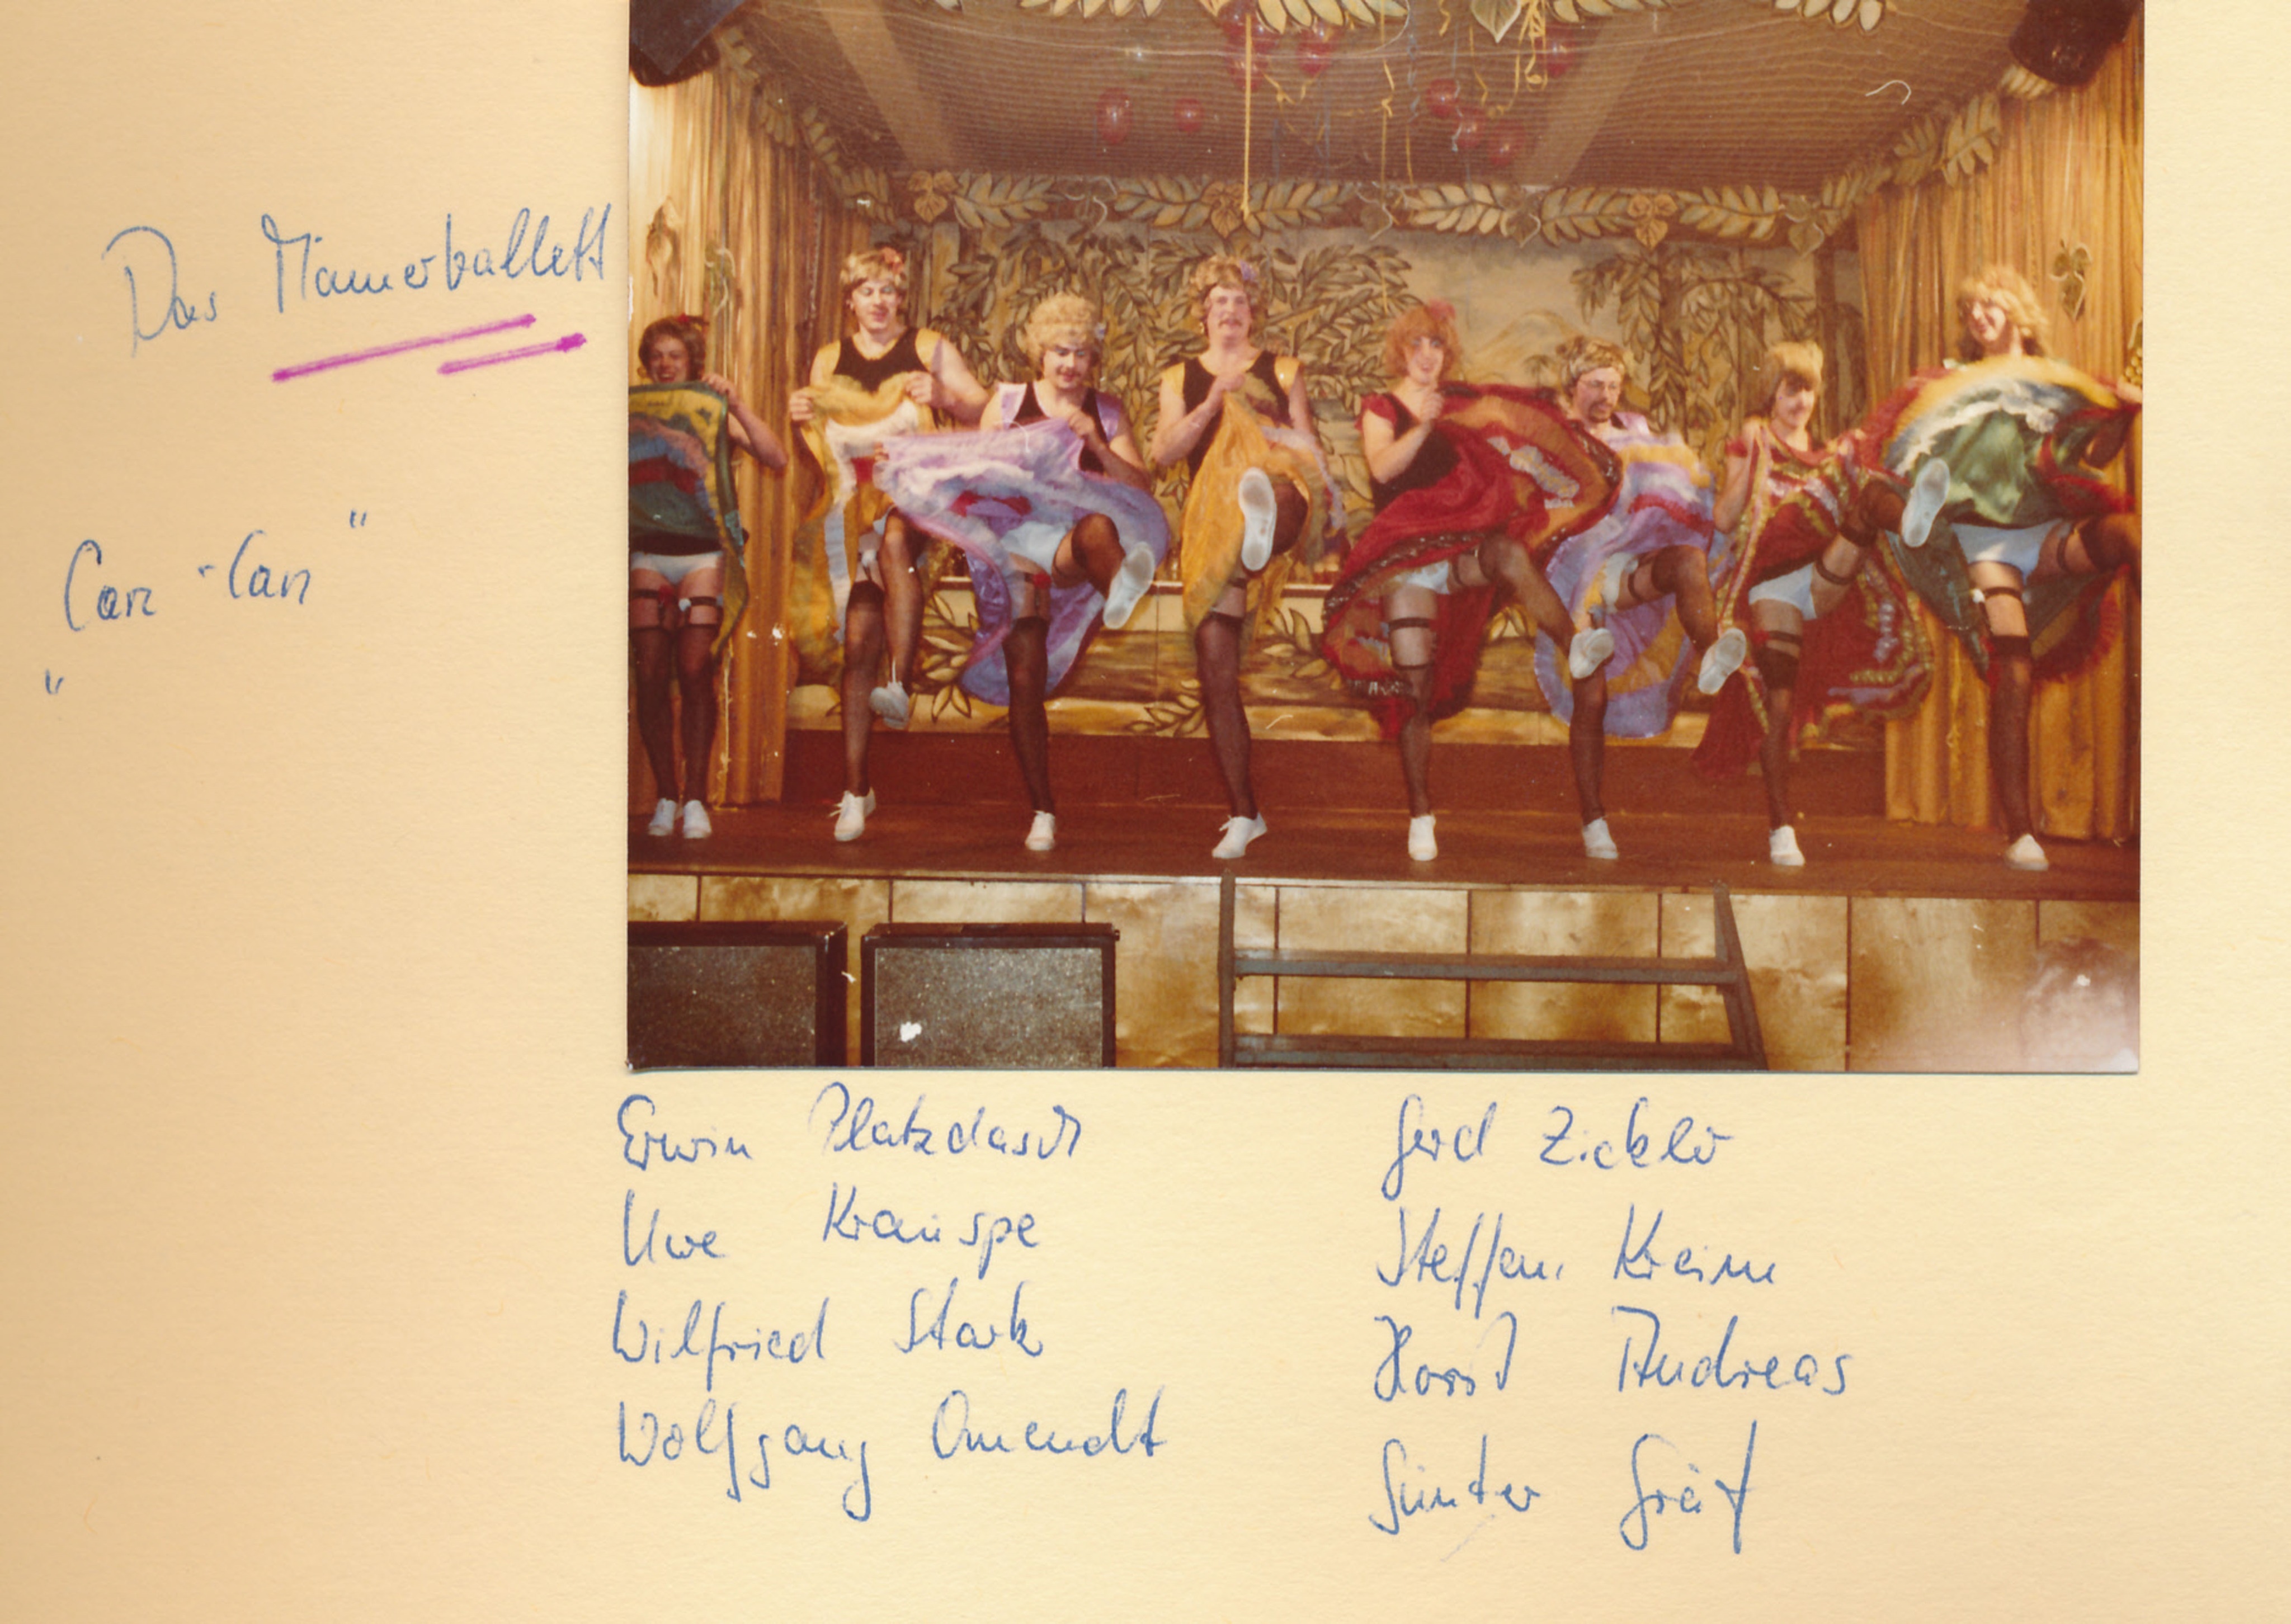 Das Männerballett
"Can-Can"
Erwin Platzdasch
Uwe Krauspe
Wilfried Stark
Wolfgang Omendt
Gerd Zickler
Steffen Kreim
Horst Andreas
Günter Gräf